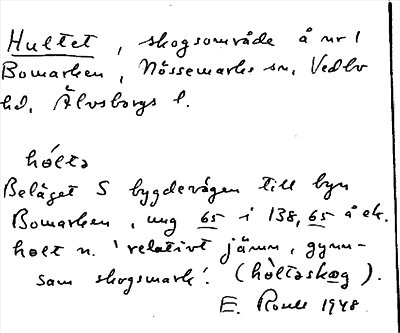 Hultet, skogsområde å nr 1
Bomarken, Nössemarks sn, Vedbo
hd, Älvsborgs l.
hòltə
Beläget S bygdevägen till byn
Bomarken, ung 65 i 138, 65 å ek.
holt n. 'relativt jämn, gynn-
sam skogsmark'. (hòltəskog).
E. 1948